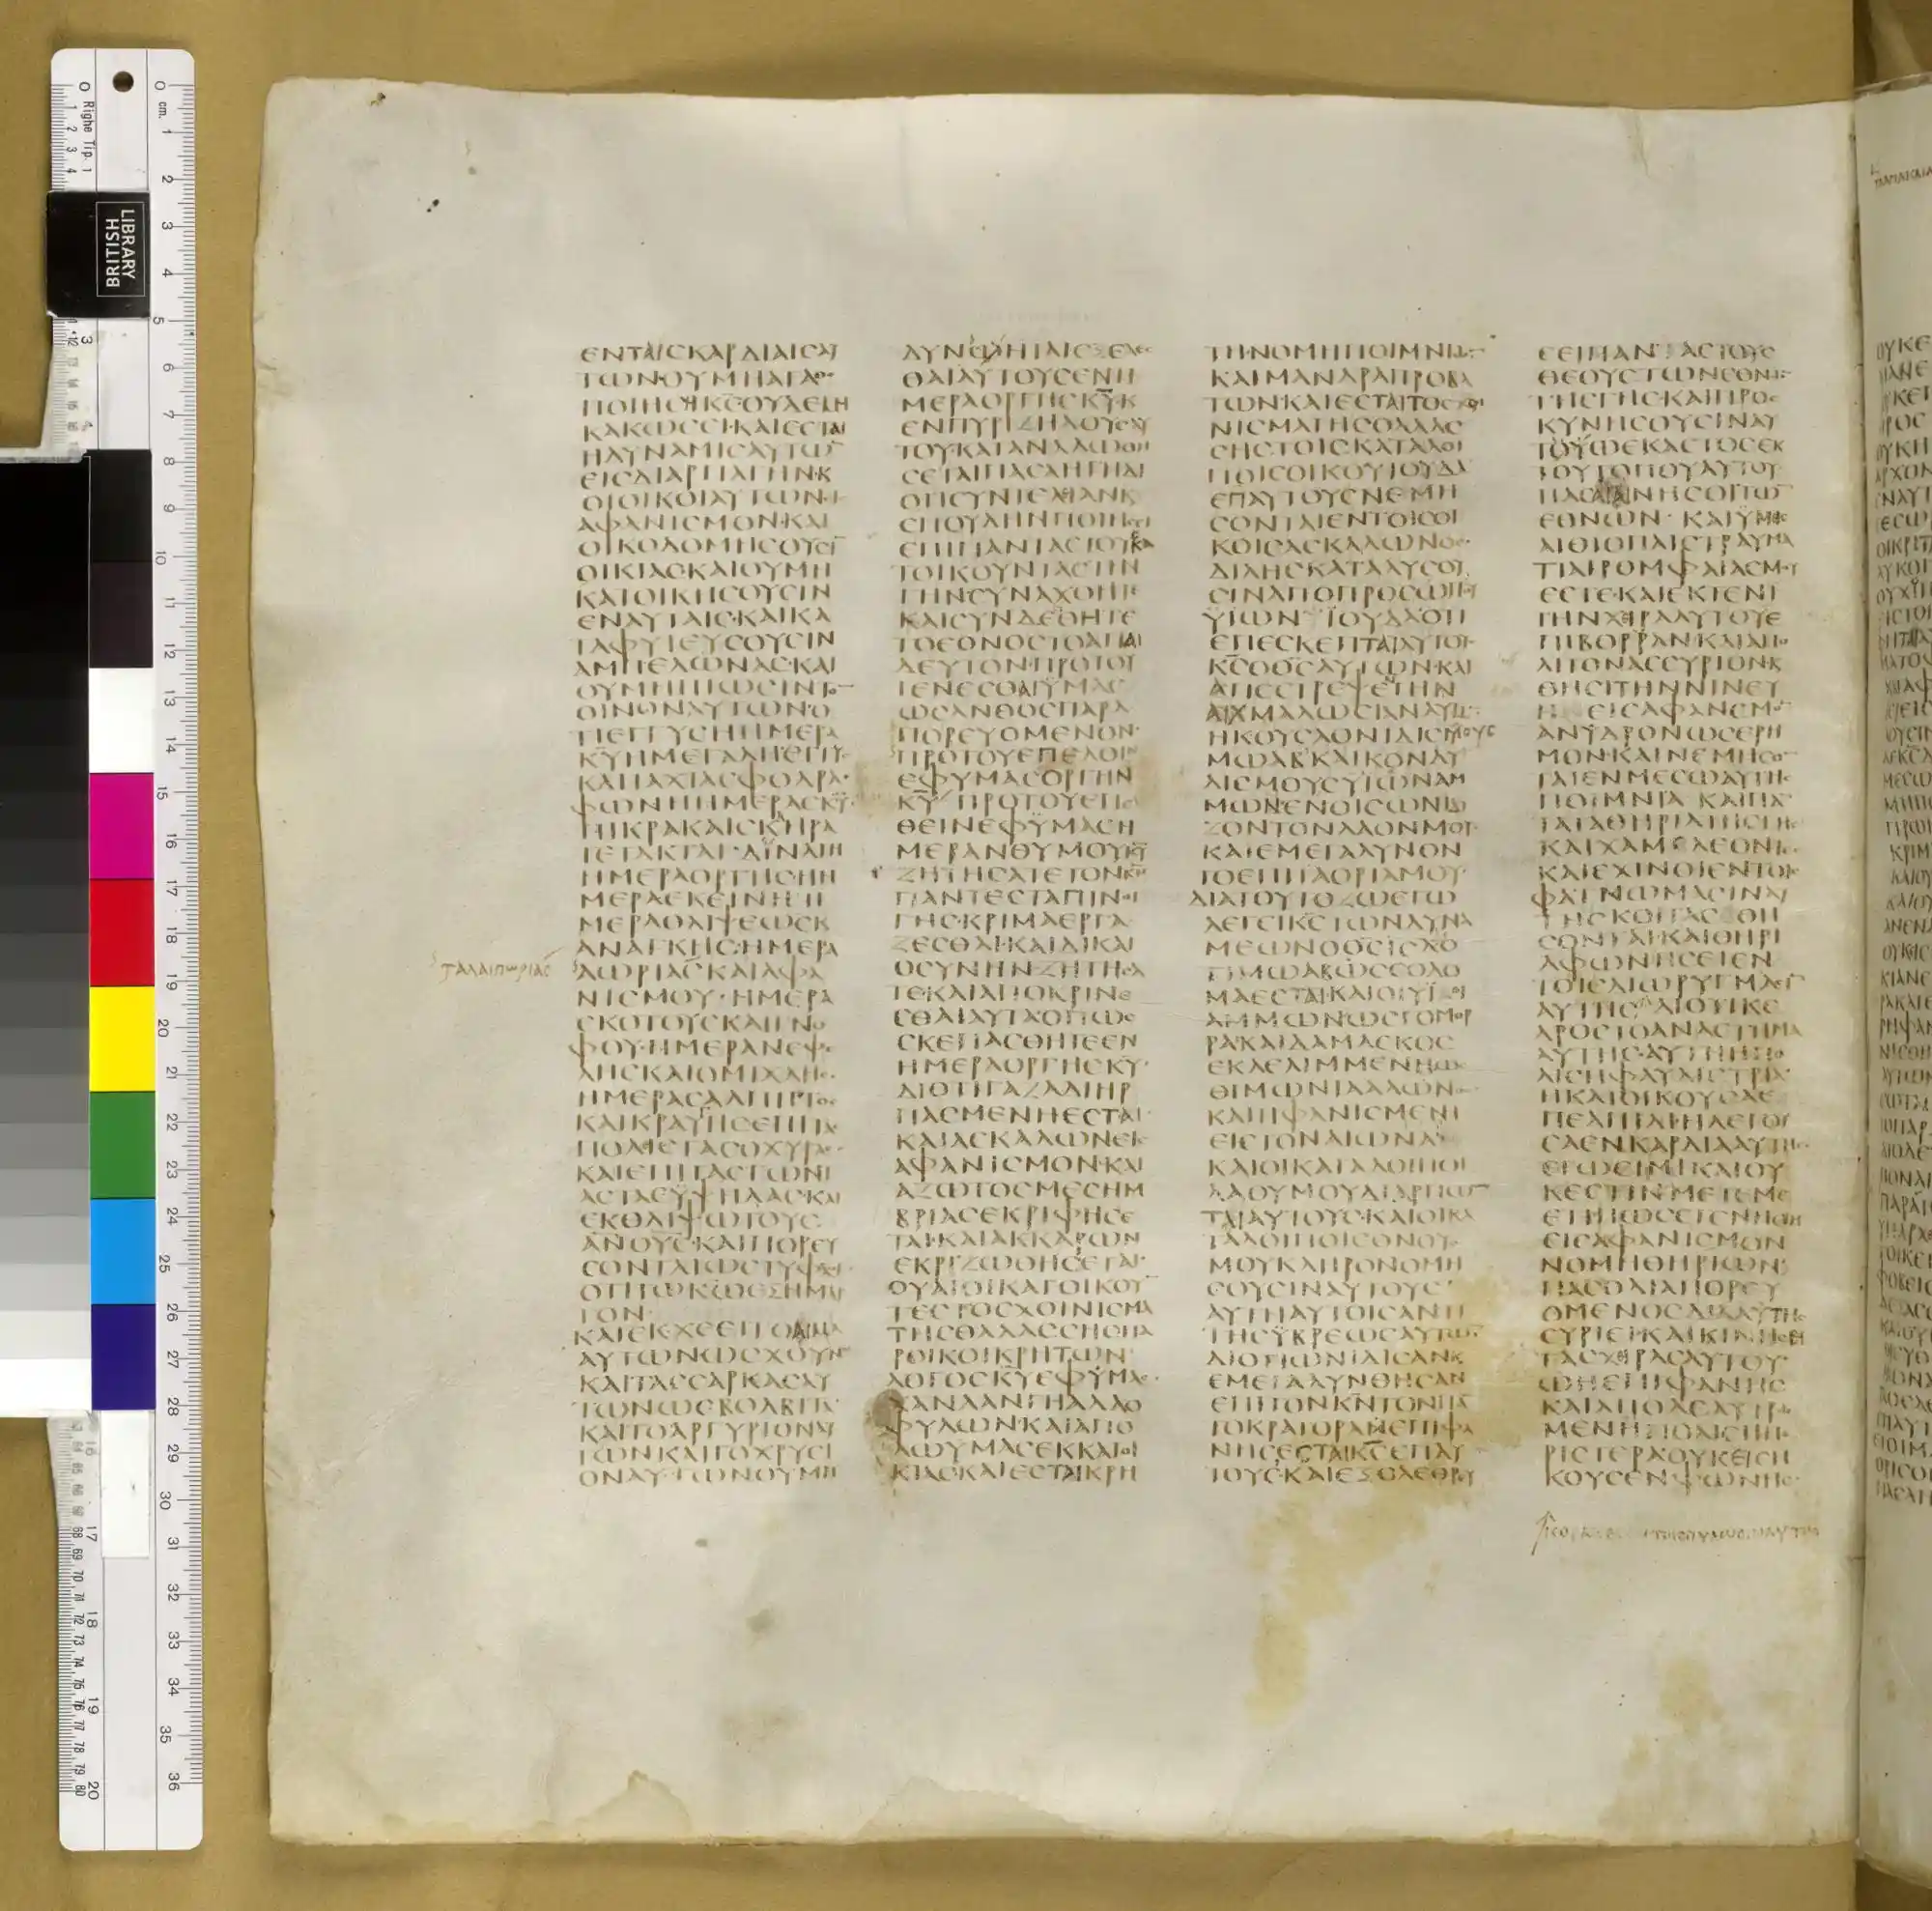 ΕΝΤΑΙCΚΑΡΔΙΑΙCΑΥ
ΤΩΝ·ΟΥΜΗΑΓΑΘΟ
ΠΟΙΗCΗΚCΟΥΔΕΜΗ
ΚΑΚΩCCΙ·ΚΑΙΕCΤΑΙ
ΗΔΥΝΑΜΙCΑΥΤΩ
ΕΙCΔΙΑΡΠΑΓΗΝ·Κ
ΟΙΟΙΚΟΙΑΥΤΩΝ
ΑΦΑΝΙCΜΟΝ·ΚΑΙ
ΟΙΚΟΔΟΜΗCΟΥCΙ
ΟΙΚΙΑC·ΚΑΙΟΥΜΗ
ΚΑΤΟΙΚΗCΟΥCΙΝ
ΕΝΑΥΤΑΙC·ΚΑΙΚΑ
ΤΑΦΥΤΕΥCΟΥCΙΝ
ΑΜΠΕΛΩΝΑC·ΚΑΙ
ΟΥΜΗΠΙΩCΙΝΤΟ
ΟΙΝΟΝΑΥΤΩΝΟ
ΤΙΕΓΓΥCΗΗΜΕΡΑ
ΚΥΗΜΕΓΑΛΗΕΓΓΥ
ΚΑΙΤΑΧΙΑCΦΟΔΡΑ·
ΦΩΝΗΗΜΕΡΑCΚΥ·
ΠΙΚΡΑΚΑΙCΚΛΗΡΑ
ΤΕΤΑΚΤΑΙ·ΔΥΝΑΤΗ
ΗΜΕΡΑΟΡΓΗCΗΗ
ΜΕΡΑΕΚΕΙΝΗ·Η
ΜΕΡΑΘΛΙΨΕΩCΚ
ΑΝΑΓΚΗC·ΗΜΕΡΑ
ταλαιπωριας
ΑΩΡΙΑCΚΑΙΑΦΑ
ΝΙCΜΟΥ·ΗΜΕΡΑ
CΚΟΤΟΥCΚΑΙΓΝΟ
ΦΟΥ·ΗΜΕΡΑΝΕΦΕ
ΛΗCΚΑΙΟΜΙΧΛΗC·
ΗΜΕΡΑCΑΛΠΙΓΓΟC
ΚΑΙΚΡΑΥΓΗCΕΠΙΤΑC
ΠΟΛΙCΤΑCΟΧΥΡΑC
ΚΑΙΕΠΙΤΑCΓΩΝΙ
ΑCΤΑCΥΨΗΛΑC·ΚΑΙ
ΕΚΘΛΙΨΩΤΟΥC
ΑΝΟΥC·ΚΑΙΠΟΡΕΥ
CΟΝΤΑΙΩCΤΥΦΛΟΙ
ΟΤΙΤΩΚΩΕΞΗΜΑΡ
ΤΟΝ·
ΚΑΙΕΚΧΕΕΙΤΟΑΙΜΑ
ΑΥΤΩΝΩCΧΟΥΝ
ΚΑΙΤΑCCΑΡΚΑCΑΥ
ΤΩΝΩCΒΟΛΒΙΤΑ
ΚΑΙΤΟΑΡΓΥΡΙΟΝΑΥ
ΤΩΝΚΑΙΤΟΧΡΥCΙ
ΟΝΑΥΤΩΝΟΥΜΗ
ΔΥΝΗΤΑΙCΕΞΕΛΕ
ΘΑΙΑΥΤΟΥCΕΝΗ
ΜΕΡΑΟΡΓΗCΚΥ·Κ
ΕΝΠΥΡΙΖΗΛΟΥΑΥ
ΤΟΥ·ΚΑΤΑΝΑΛΩΘΗ
CΕΤΑΙΠΑCΑΗΓΗΔΙ
ΟΤΙCΥΝΤΕΛΙΑΝΚ
CΠΟΥΔΗΝΠΟΙΗCΙ
ΕΠΙΠΑΝΤΑCΤΟΥCΚΑ
ΤΟΙΚΟΥΝΤΑCΤΗΝ
ΓΗΝCΥΝΑΧΘΗΤΕ
ΚΑΙCΥΝΔΕΘΗΤΕ
ΤΟΕΘΝΟCΤΟΑΠΑΙ
ΔΕΥΤΟΝ·ΠΡΟΤΟΥ
ΓΕΝΕCΘΑΙΥΜΑC
ΩCΑΝΘΟCΠΑΡΑ
ΠΟΡΕΥΟΜΕΝΟΝ·
ΠΡΟΤΟΥΕΠΕΛΘΙΝ
ΕΦΥΜΑCΟΡΓΗΝ
ΚΥ ΠΡΟΤΟΥΕΠΕΛ
ΘΕΙΝΕΦΥΜΑCΗ
ΜΕΡΑΝΘΥΜΟΥΚΥ
ΖΗΤΗCΑΤΕΤΟΝΚΝ
ΠΑΝΤΕCΤΑΠΙΝΟΙ
ΓΗC·ΚΡΙΜΑΕΡΓΑ
ΖΕCΘΑΙ·ΚΑΙΔΙΚΑΙ
ΟCΥΝΗΝΖΗΤΗCΑ
ΤΕ·ΚΑΙΑΠΟΚΡΙΝΕ
CΘΑΙΑΥΤΑΟΠΩC
CΚΕΠΑCΘΗΤΕΕΝ
ΗΜΕΡΑΟΡΓΗCΚΥ·
ΔΙΟΤΙΓΑΖΑΔΙΗΡ
ΠΑCΜΕΝΗΕCΤΑΙ·
ΚΑΙΑCΚΑΛΩΝΕΙC
ΑΦΑΝΙCΜΟΝ·ΚΑΙ
ΑΖΩΤΟCΜΕCΗΜ
ΒΡΙΑCΕΚΡΙΦΗCΕ
ΤΑΙ·ΚΑΙΑΚΚΑΡΩΝ
ΕΚΡΙΖΩΘΗCΕΤΑΙ·
ΟΥΑΙΟΙΚΑΤΟΙΚΟΥ
ΤΕCΤΟCΧΟΙΝΙCΜΑ
ΤΗCΘΑΛΑCCΗCΠΑ
ΡΟΙΚΟΙΚΡΗΤΩΝ
ΛΟΓΟCΚΥΕΦΥΜΑC·
ΧΑΝΑΑΝΓΗΑΛΛΟ
ΦΥΛΩΝ·ΚΑΙΑΠΟ
ΛΩΥΜΑCΕΚΚΑΤΟΙ
ΚΙΑC·ΚΑΙΕCΤΑΙΚΡΗ
ΤΗ·ΝΟΜΗΠΟΙΜΝΙΩ
ΚΑΙΜΑΝΔΡΑΠΡΟΒΑ
ΤΩΝ·ΚΑΙΕCΤΑΙΤΟCΧΟΙ
ΝΙCΜΑΤΗCΘΑΛΑC
CΗCΤΟΙCΚΑΤΑΛΟΙ
ΠΟΙCΟΙΚΟΥΙΟΥΔΑ
ΕΠΑΥΤΟΥCΝΕΜΗ
CΟΝΤΑΙΕΝΤΟΙCΟΙ
ΚΟΙCΑCΚΑΛΩΝΟC·
ΔΙΛΗCΚΑΤΑΛΥCΟΥ
CΙΝΑΠΟΠΡΟCΩΠΟΥ
ΥΙΩΝ ΙΟΥΔΑΟΤΙ
ΕΠΕCΚΕΠΤΑΙΑΥΤΟΥC
ΚCΟΘCΑΥΤΩΝ·ΚΑΙ
ΑΠΕCΤΡΕΨΕΤΗΝ
ΑΙΧΜΑΛΩCΙΑΝΑΥΤΩ
ΗΚΟΥCΑΟΝΙΔΙCΜΟΥC
ΜΩΑΒ·ΚΑΙΚΟΝΔΥ
ΛΙCΜΟΥCΥΙΩΝΑΜ
ΜΩΝ·ΕΝΟΙCΩΝΙΔΙ
ΖΟΝΤΟΝΛΑΟΝΜΟΥ
ΚΑΙΕΜΕΓΑΛΥΝΟΝ
ΤΟΕΠΙΤΑΟΡΙΑΜΟΥ
ΔΙΑΤΟΥΤΟΖΩΕΓΩ
ΛΕΓΕΙΚCΤΩΝΔΥΝΑ
ΜΕΩΝΟΘCΙCΧΟ
ΤΙΜΩΑΒΩCCΟΔΟ
ΜΑΕCΤΑΙ·ΚΑΙΟΙΥΙΟΙ
ΑΜΜΩΝΩCΓΟΜΟΡ
ΡΑ·ΚΑΙΔΑΜΑCΚΟC
ΕΚΛΕΛΙΜΜΕΝΗΩC
ΘΙΜΩΝΙΑΑΛΩΝΟC
ΚΑΙΗΦΑΝΙCΜΕΝΗ
ΕΙCΤΟΝΑΙΩΝΑ·
ΚΑΙΟΙΚΑΤΑΛΟΙΠΟΙ
ΛΑΟΥΜΟΥΔΙΑΡΠΩ
ΤΑΙΑΥΤΟΥC·ΚΑΙΟΙΚΑ
ΤΑΛΟΙΠΟΙCΟΝΟΥ
ΜΟΥΚΛΗΡΟΝΟΜΗ
CΟΥCΙΝΑΥΤΟΥC·
ΑΥΤΗΑΥΤΟΙCΑΝΤΙ
ΤΗCΥΒΡΕΩCΑΥΤΩ
ΔΙΟΤΙΩΝΙΔΙCΑΝΚ
ΕΜΕΓΑΛΥΝΘΗCΑΝ
ΕΠΙΤΟΝΚΝΤΟΝΠΑ
ΤΟΚΡΑΤΟΡΑ·ΕΠΙΦΑ
ΝΗCΕCΤΑΙΚCΕΠΑΥ
ΤΟΥC·ΚΑΙΕΞΟΛΕΘΡΥ
CΕΙΠΑΝΤΑCΤΟΥC
ΘΕΟΥCΤΩΝΕΘΝΩ
ΤΗCΓΗC·ΚΑΙΠΡΟC
ΚΥΝΗCΟΥCΙΝΑΥ
ΤΟΥΩΕΚΑCΤΟCΕΚ
ΤΟΥΤΟΠΟΥΑΥΤΟΥ
ΠΑCΑΙΑΙΝΗCΟΙΤΩ
ΕΘΝΩΝ· ΚΑΙΥΜΙC
ΑΙΘΙΟΠΑΙCΤΡΑΥΜΑ
ΤΙΑΙΡΟΜΦΑΙΑCΜΟΥ
ΕCΤΕ·ΚΑΙΕΚΤΕΝΙ
ΤΗΝΧΙΡΑΑΥΤΟΥΕ
ΠΙΒΟΡΡΑΝ·ΚΑΙΑΠΟ
ΛΙΤΟΝΑCCΥΡΙΟΝΚ
ΘΗCΙΤΗΝΝΙΝΕΥ
Η ΕΙCΑΦΑΝΙCΜΟ
ΑΝΥΔΡΟΝΩCΕΡΗ
ΜΟΝ·ΚΑΙΝΕΜΗCΟ
ΤΑΙΕΝΜΕCΩΑΥΤΗC
ΠΟΙΜΝΙΑ ΚΑΙΠΑ
ΤΑΤΑΘΗΡΙΑΤΗCΓΗC
ΚΑΙΧΑΜΕΛΕΟΝΤΕC
ΚΑΙΕΧΙΝΟΙΕΝΤΟΙC
ΦΑΤΝΩΜΑCΙΝΑΥ
ΤΗCΚΟΙΤΑCΘΗ
CΟΝΤΑΙ·ΚΑΙΘΗΡΙ
ΑΦΩΝΗCΕΙΕΝ
ΤΟΙCΔΙΩΡΥΓΜΑCΙ
ΑΥΤΗC·ΔΙΟΤΙΚΕ
ΔΡΟCΤΟΑΝΑCΤΗΜΑ
ΑΥΤΗC·ΑΥΤΗΗΠΟ
ΛΙCΗΦΑΥΛΙCΤΡΙΑ
ΗΚΑΤΟΙΚΟΥCΑΕ
ΠΕΛΠΙΔΙ·ΗΛΕΓΟΥ
CΑΕΝΚΑΡΔΙΑΑΥΤΗC
ΕΓΩΕΙΜΙ·ΚΑΙΟΥ
ΚΕCΤΙΝΜΕΤΕΜΕ
ΕΤΙΠΩCΕΓΕΝΗΘΗ
ΕΙCΑΦΑΝΙCΜΟΝ
ΝΟΜΗΘΗΡΙΩΝ·
ΠΑCΟΔΙΑΠΟΡΕΥ
ΟΜΕΝΟCΔΙΑΥΤΗC
CΥΡΙΕΙ·ΚΑΙΚΙΝΗCΕΙ
ΤΑCΧΙΡΑCΑΥΤΟΥ·
ΩΗΕΠΙΦΑΝΗC
ΚΑΙΑΠΟΛΕΛΥΤΡΩ
ΜΕΝΗΠΟΛΙCΗΠΕ
ΡΙCΤΕΡΑΟΥΚΕΙCΗ
ΚΟΥCΕΝΦΩΝΗC
BRITISH
LIBRARY
0 Righe Tip. 1
0 cm. 1